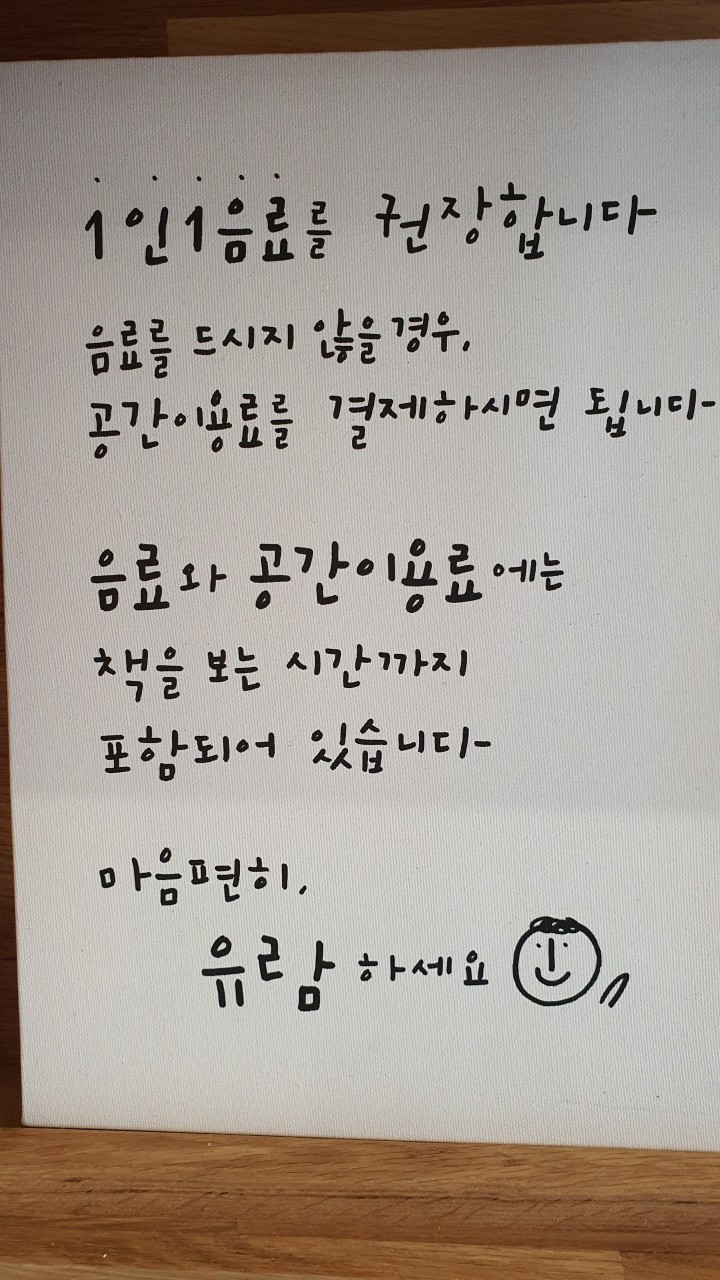 1인1음료를 권장합니다
음료를 드시지 않을 경우,
공간이용료를 결제하시면 됩니다
음료와 공간이용료에는
책을 보는 시간까지
포함되어 있습니다
마음편히,
유람하세요